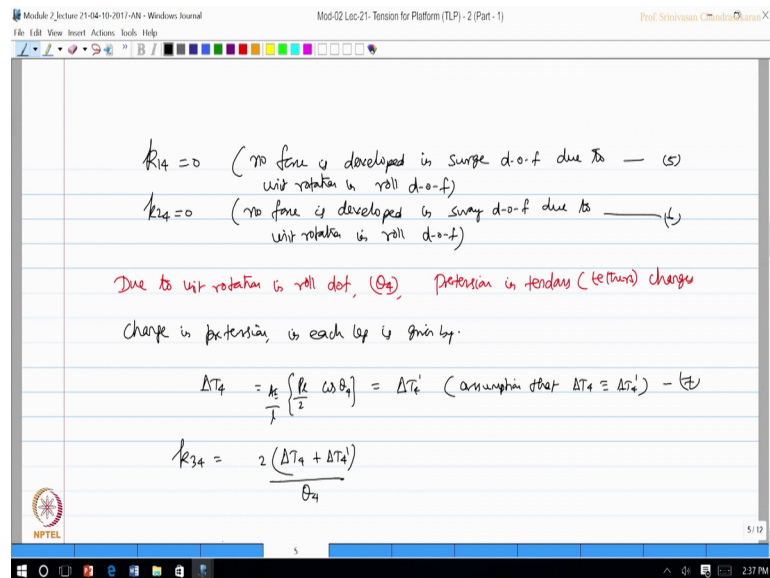 Module 2_lecture 21-04-10-2017-AN - Windows Journal
Mod-02 Lec-21- Tension for Platform (TLP) - 2 (Part - 1)
Prof. Srinivasan Chandrasekaran
File Edit View Insert Actions Tools Help
k14 = 0 (no force is developed in surge d-o-f due to — (5)
unit rotation in roll d-o-f)
k24 = 0 (no force is developed in sway d-o-f due to — (6)
unit rotation in roll d-o-f)
Due to unit rotation in roll dof, (θ4), pretension in tendons (tethers) changes
Change in pretension, in each leg is given by.
ΔT4 = AE/l {Pl/2 cos θ4} = ΔT4' (assumption that ΔT4 ≡ ΔT4') — (7)
k34 = 2(ΔT4 + ΔT4')/θ4
NPTEL
5/12
5
2:37 PM